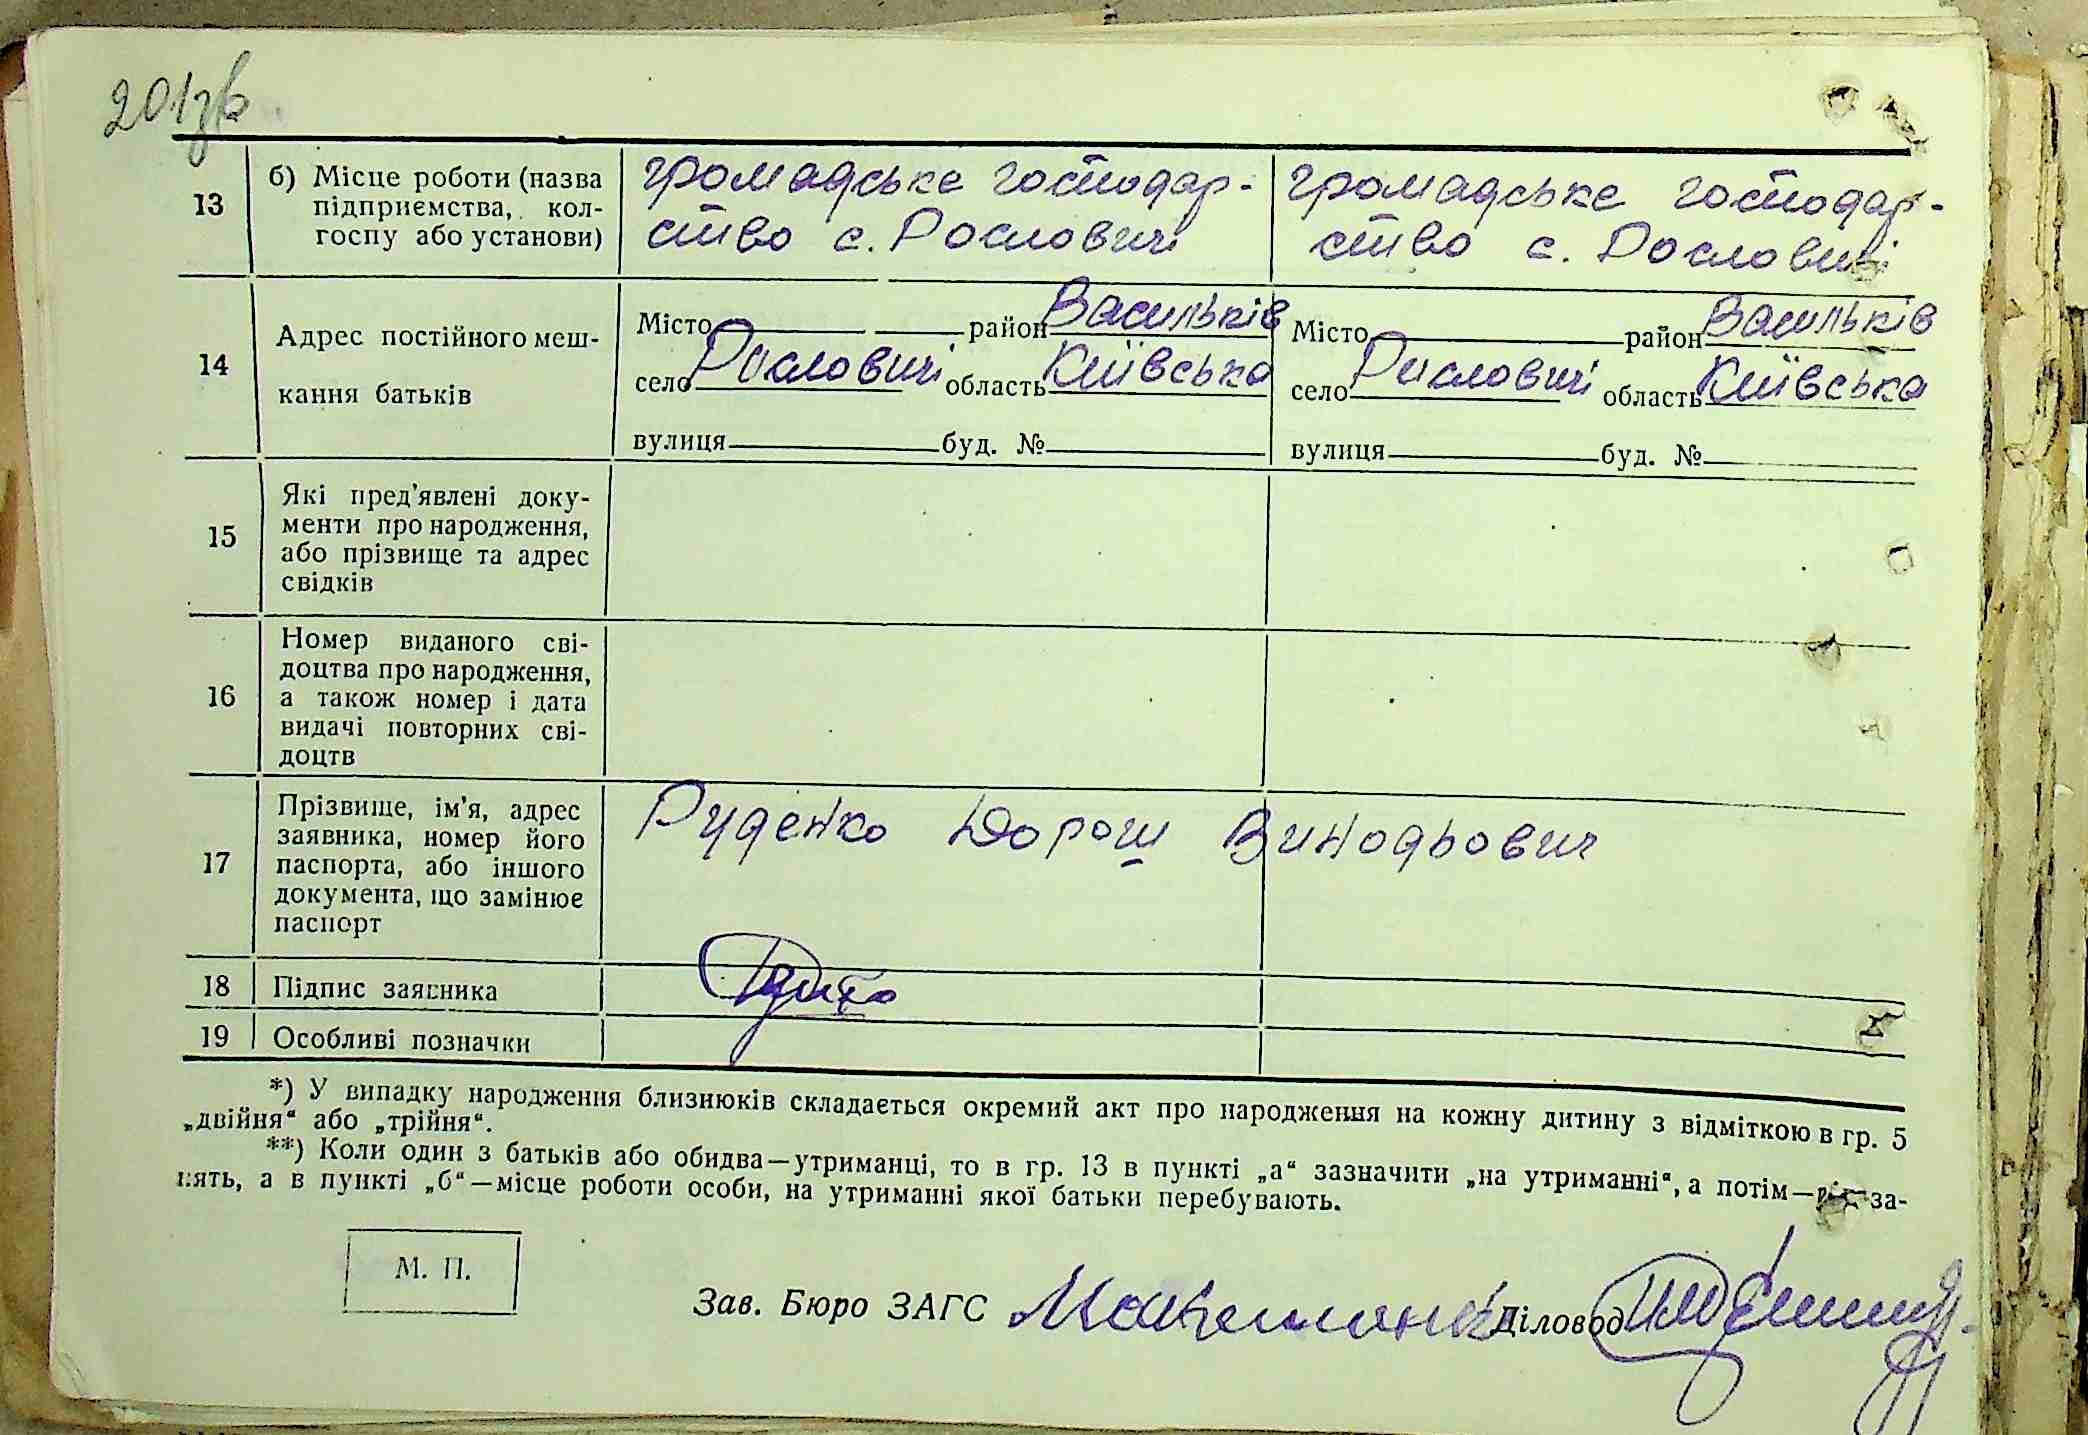 201зв
13
б) Місце роботи (назва
підприємства, кол-
госпу або установи)
громадське господар-
ство с. Рословичі
громадське господар-
ство с. Рословичі
14
Адрес постійного меш-
кання батьків
Місто район Васильків
село Рословичі область Київська
вулиця буд. №
Місто район Васильків
село Рословичі область Київська
вулиця буд. №
15
Які пред'явлені доку-
менти про народження,
або прізвище та адрес
свідків
16
Номер виданого сві-
доцтва про народження,
а також номер і дата
видачі повторних сві-
доцтв
17
Прізвище, ім'я, адрес
заявника, номер його
паспорта, або іншого
документа, що замінює
паспорт
Руденко Дорош
18
Підпис заявника
19
Особливі позначки
*) У випадку народження близнюків складається окремий акт про народження на кожну дитину з відміткою в гр. 5
„двійня“ або „трійня“.
**) Коли один з батьків або обидва—утриманці, то в гр. 13 в пункті „а“ зазначити „на утриманні“, а потім— за-
нять, а в пункті „б“—місце роботи особи, на утриманні якої батьки перебувають.
М. П.
Зав. Бюро ЗАГС
Діловод